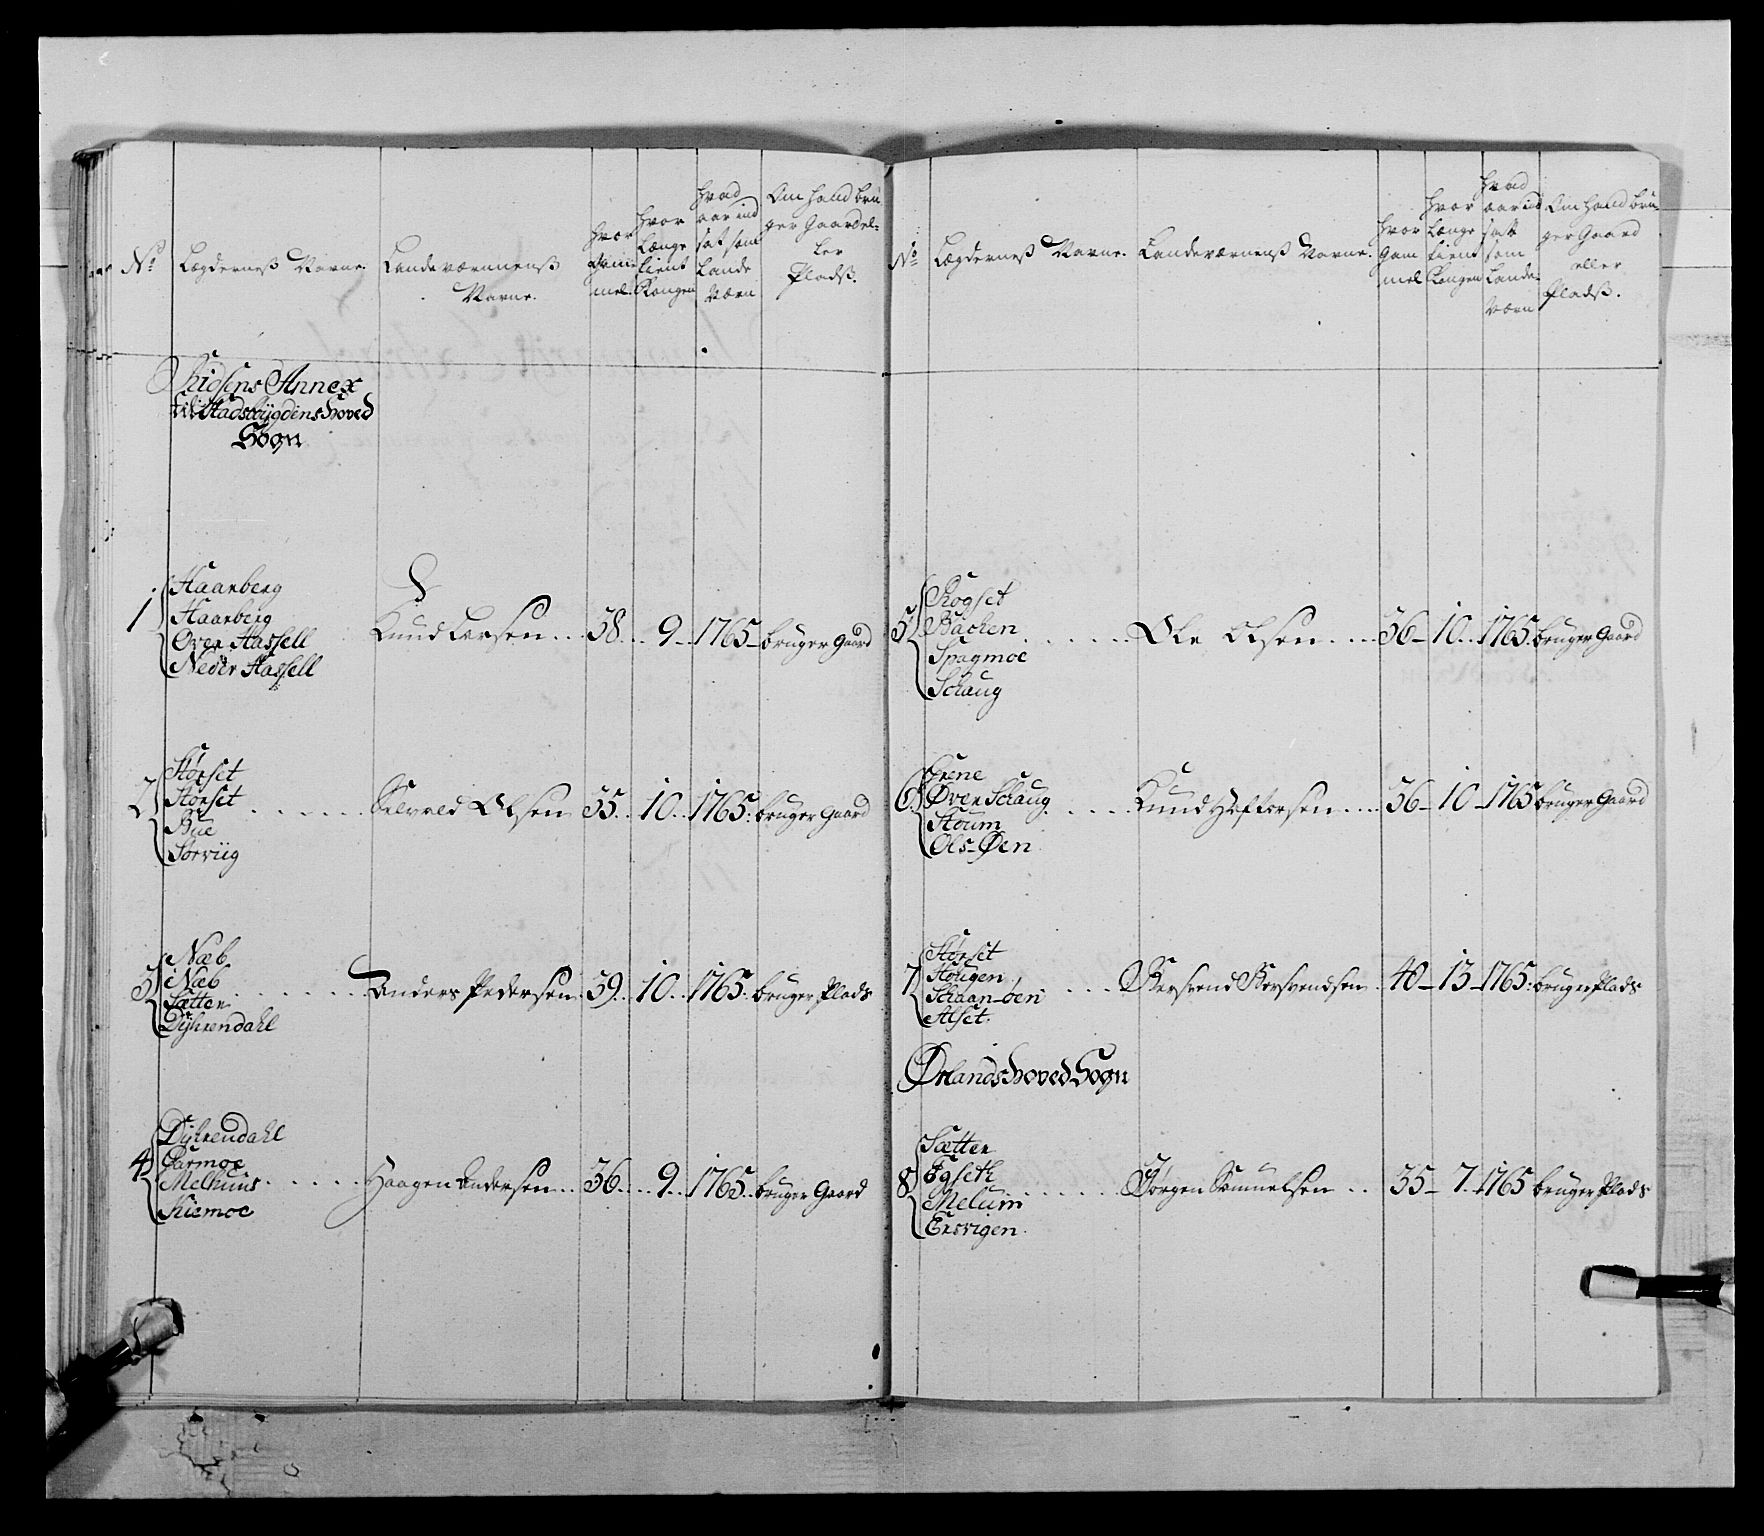 No
Lægdernes Navne.
Landeværnnens
Navne.
hvor
gam¯
mel.
hvor
længe
tient
Kongen
hvad
aar ind
sat som
Lande
Værn
Om hand bru
ger Gaard el-
ler
Plads.
Annex
til Stadsbygdens Hoved
Sogn
1
Haarberg
Haarberg
Over Hassell
Neder Hassell
Knud Larsen 38 9 1765 bruger Gaard
2
Størset
Størset
Bue
Sørviig
Olsen 35 10 1765 bruger Gaard
3
Næb
Næb
Sætter
Dyhrendahl
Anders Pedersen 39 10 1765 bruger Plads
4
Dyhrendahl
Garmoe
Melhuus
Kiemoe
Haagen Andersen 36 9 1765 bruger Gaard
No
Lægdernes Navne.
Landeværnens Navne.
hvor
gam
mel
hvor
længe
tient
Kongen
hvad
aar ind
satt
som
Lande-
Værn
Om hand bru-
ger Gaard
eller
Plads.
5
Rogset
Bachen
Spagmoe
Schaug
Ole Olsen 36 10 1765 bruger Gaard
6
Grene
Øver Schaug
Stoum
Ols-Øen
Knud Heftorsen 36 10 1765 bruger Gaard
7
Størset
Hougen
Schaan-øen
Alset
40 13 1765 bruger Plads
Ørlands Hoved Sogn
8
Sætter
Egseth
Melum
Ervigen
Jørgen Samuelsen 35 7 1765 bruger Plads